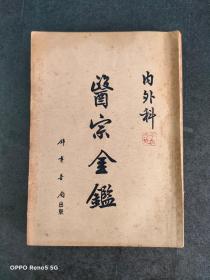 内外科
醫宗金鑑
書局出版
OPPO Reno5 5G